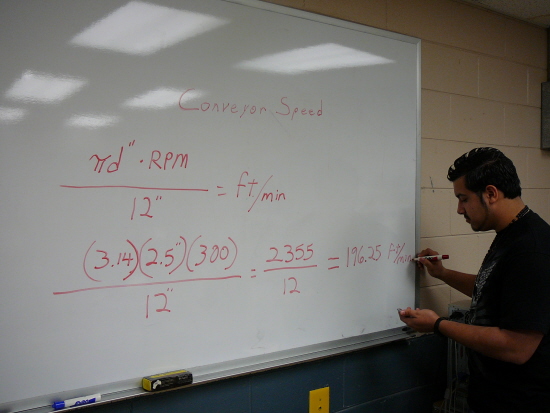 Conveyor Speed
πd" · RPM
12"
= ft/min
(3.14)(2.5")(300)
12"
= 2355
12
= 196.25 ft/min